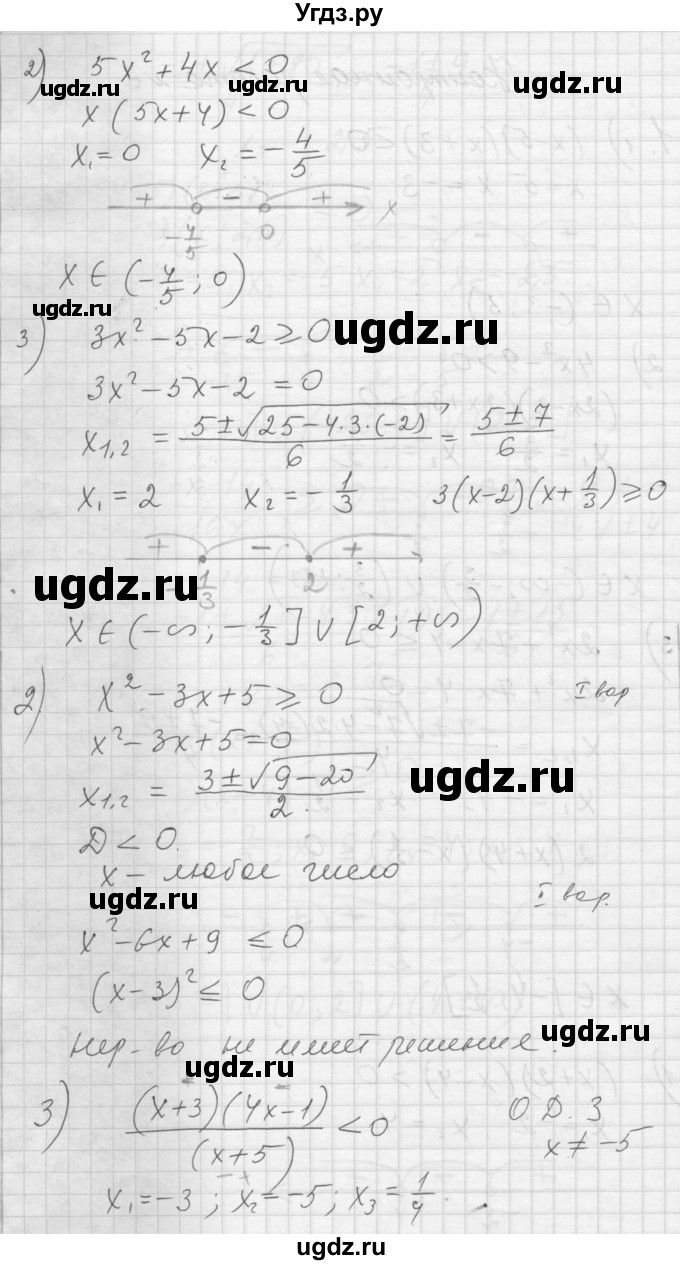 Угдз.ру
2) 5x² + 4x < 0
ugdz.ru
ugdz.ru
x(5x+4) < 0
x₁ = 0 x₂ = -4/5
+ - + x
-4/5 0
x ∈ (-4/5; 0)
ugdz.ru
3) 3x² - 5x - 2 ⩾ 0
ugdz.ru
3x² - 5x - 2 = 0
x₁,₂ = (5 ± √(25 - 4·3·(-2)))/6 = (5 ± 7)/6
x₁ = 2 x₂ = -1/3 3(x-2)(x+1/3) ⩾ 0
+ - +
ugdz.ru
1/3 2
x ∈ (-∞; -1/3] ∪ [2; +∞)
2) x² - 3x + 5 ⩾ 0 I вар
x² - 3x + 5 = 0
x₁,₂ = (3 ± √(9 - 20))/2
ugdz.ru
D < 0.
x - любое число
ugdz.ru
I вар.
x² - 6x + 9 ≤ 0
(x-3)² ≤ 0
ugdz.ru
Нер-во не имеет решения.
ugdz.ru
3) (x+3)(4x-1)/(x+5) < 0 О.Д.З
x ≠ -5
x₁ = -3; x₂ = -5; x₃ = 1/4.
ugdz.ru